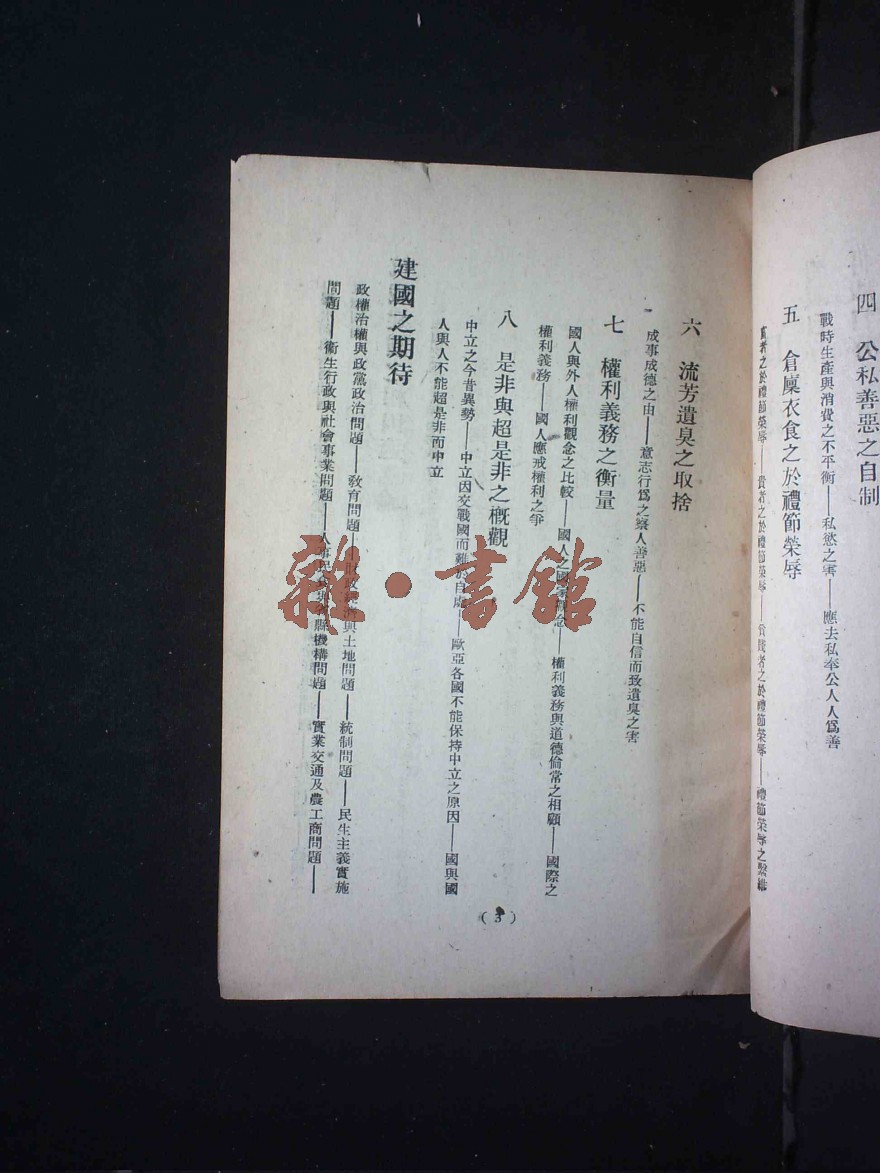 四　公私善惡之自制
戰時生產與消費之不平衡——私慾之害——應去私奉公人人爲善
五　倉廩衣食之於禮節榮辱
富者之於禮節榮辱——貴者之於禮節榮辱——貧賤者之於禮節榮辱——禮節榮辱之繫維
六　流芳遺臭之取捨
成事成德之由——意志行爲之察人善惡——不能自信而致遺臭之害
七　權利義務之衡量
國人與外人權利觀念之比較——國人之國家觀念——權利義務與道德倫常之相顧——國際之
權利義務——國人應戒權利之爭
八　是非與超是非之概觀
中立之今昔異勢——中立因交戰國而難於自處——歐亞各國不能保持中立之原因——國與國
人與人不能超是非而中立
建國之期待
政權治權與政黨政治問題——敎育問題——財政經濟與土地問題——統制問題——民生主義實施
問題——衞生行政與社會事業問題——人事民意省縣機構問題——實業交通及農工商問題——
(3)
雜·書館